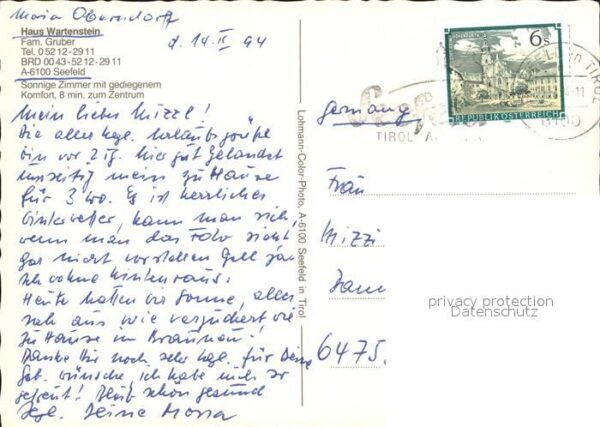 Maria Oberndorf
d. 14. II 94
Haus Wartenstein
Fam. Gruber
Tel. 0 52 12 - 29 11
BRD 00 43 - 52 12 - 29 11
A-6100 Seefeld
Sonnige Zimmer mit gediegenem
Komfort, 8 min. zum Zentrum
Mein lieber Mizzl!
Die aller hzl. Urlaubsgrüße
bin vor 2 Tg. hier gut gelandet
mein zu Hause
für 3 Wo. Es ist herrliches
Winterwetter, kann man sich
wenn man das Foto sieht
gar nicht vorstellen Gell
Ich wohne hinten raus.
Heute hatten wir Sonne, alles
sah aus wie verzuckert wie
zu Hause im
Danke Dir noch sehr hzl. für Deine
Geb. wünsche, ich habe mich so
gefreut! Bleib schön gesund
Hzl. Deine
Lohmann-Color-Photo, A-6100 Seefeld in Tirol
6 S
REPUBLIK ÖSTERREICH
TIROL
6100
Germany
Frau
Mizzi
6475
privacy protection
Datenschutz